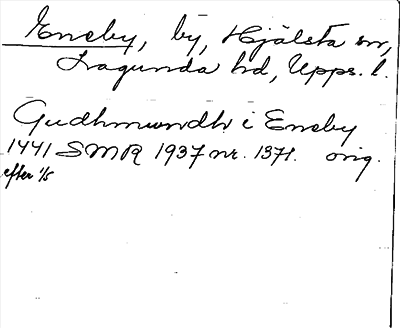 Eneby, by, Hjälsta sn,
Lagunda hd, Upps. l.
Gudhmundh i Eneby
1441 SMR 1937 nr. 1371. orig.
efter 1/5